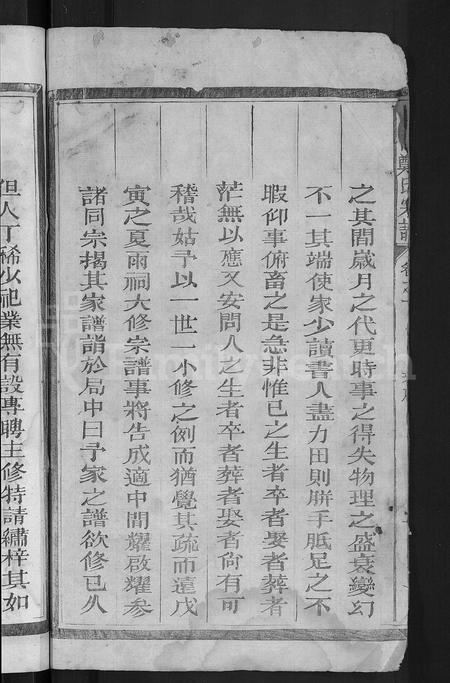 鄭氏宗譜
之其間歲月之代更時事之得失物理之盛衰變幻
不一其端使家少讀書人盡力田則胼手胝足之不
暇仰事俯畜之是急非惟已之生者卒者娶者葬者
茫無以應又安問人之生者卒者葬者娶者尚有可
稽哉姑予以一世一小修之例而猶覺其疏而遠戊
寅之夏兩祠大修宗譜事將告成適中間耀啟耀參
諸同宗揭其家譜詣於局中曰予家之譜欲修已久
但人丁稀少祀業無有設專聘主修特請繡梓其如